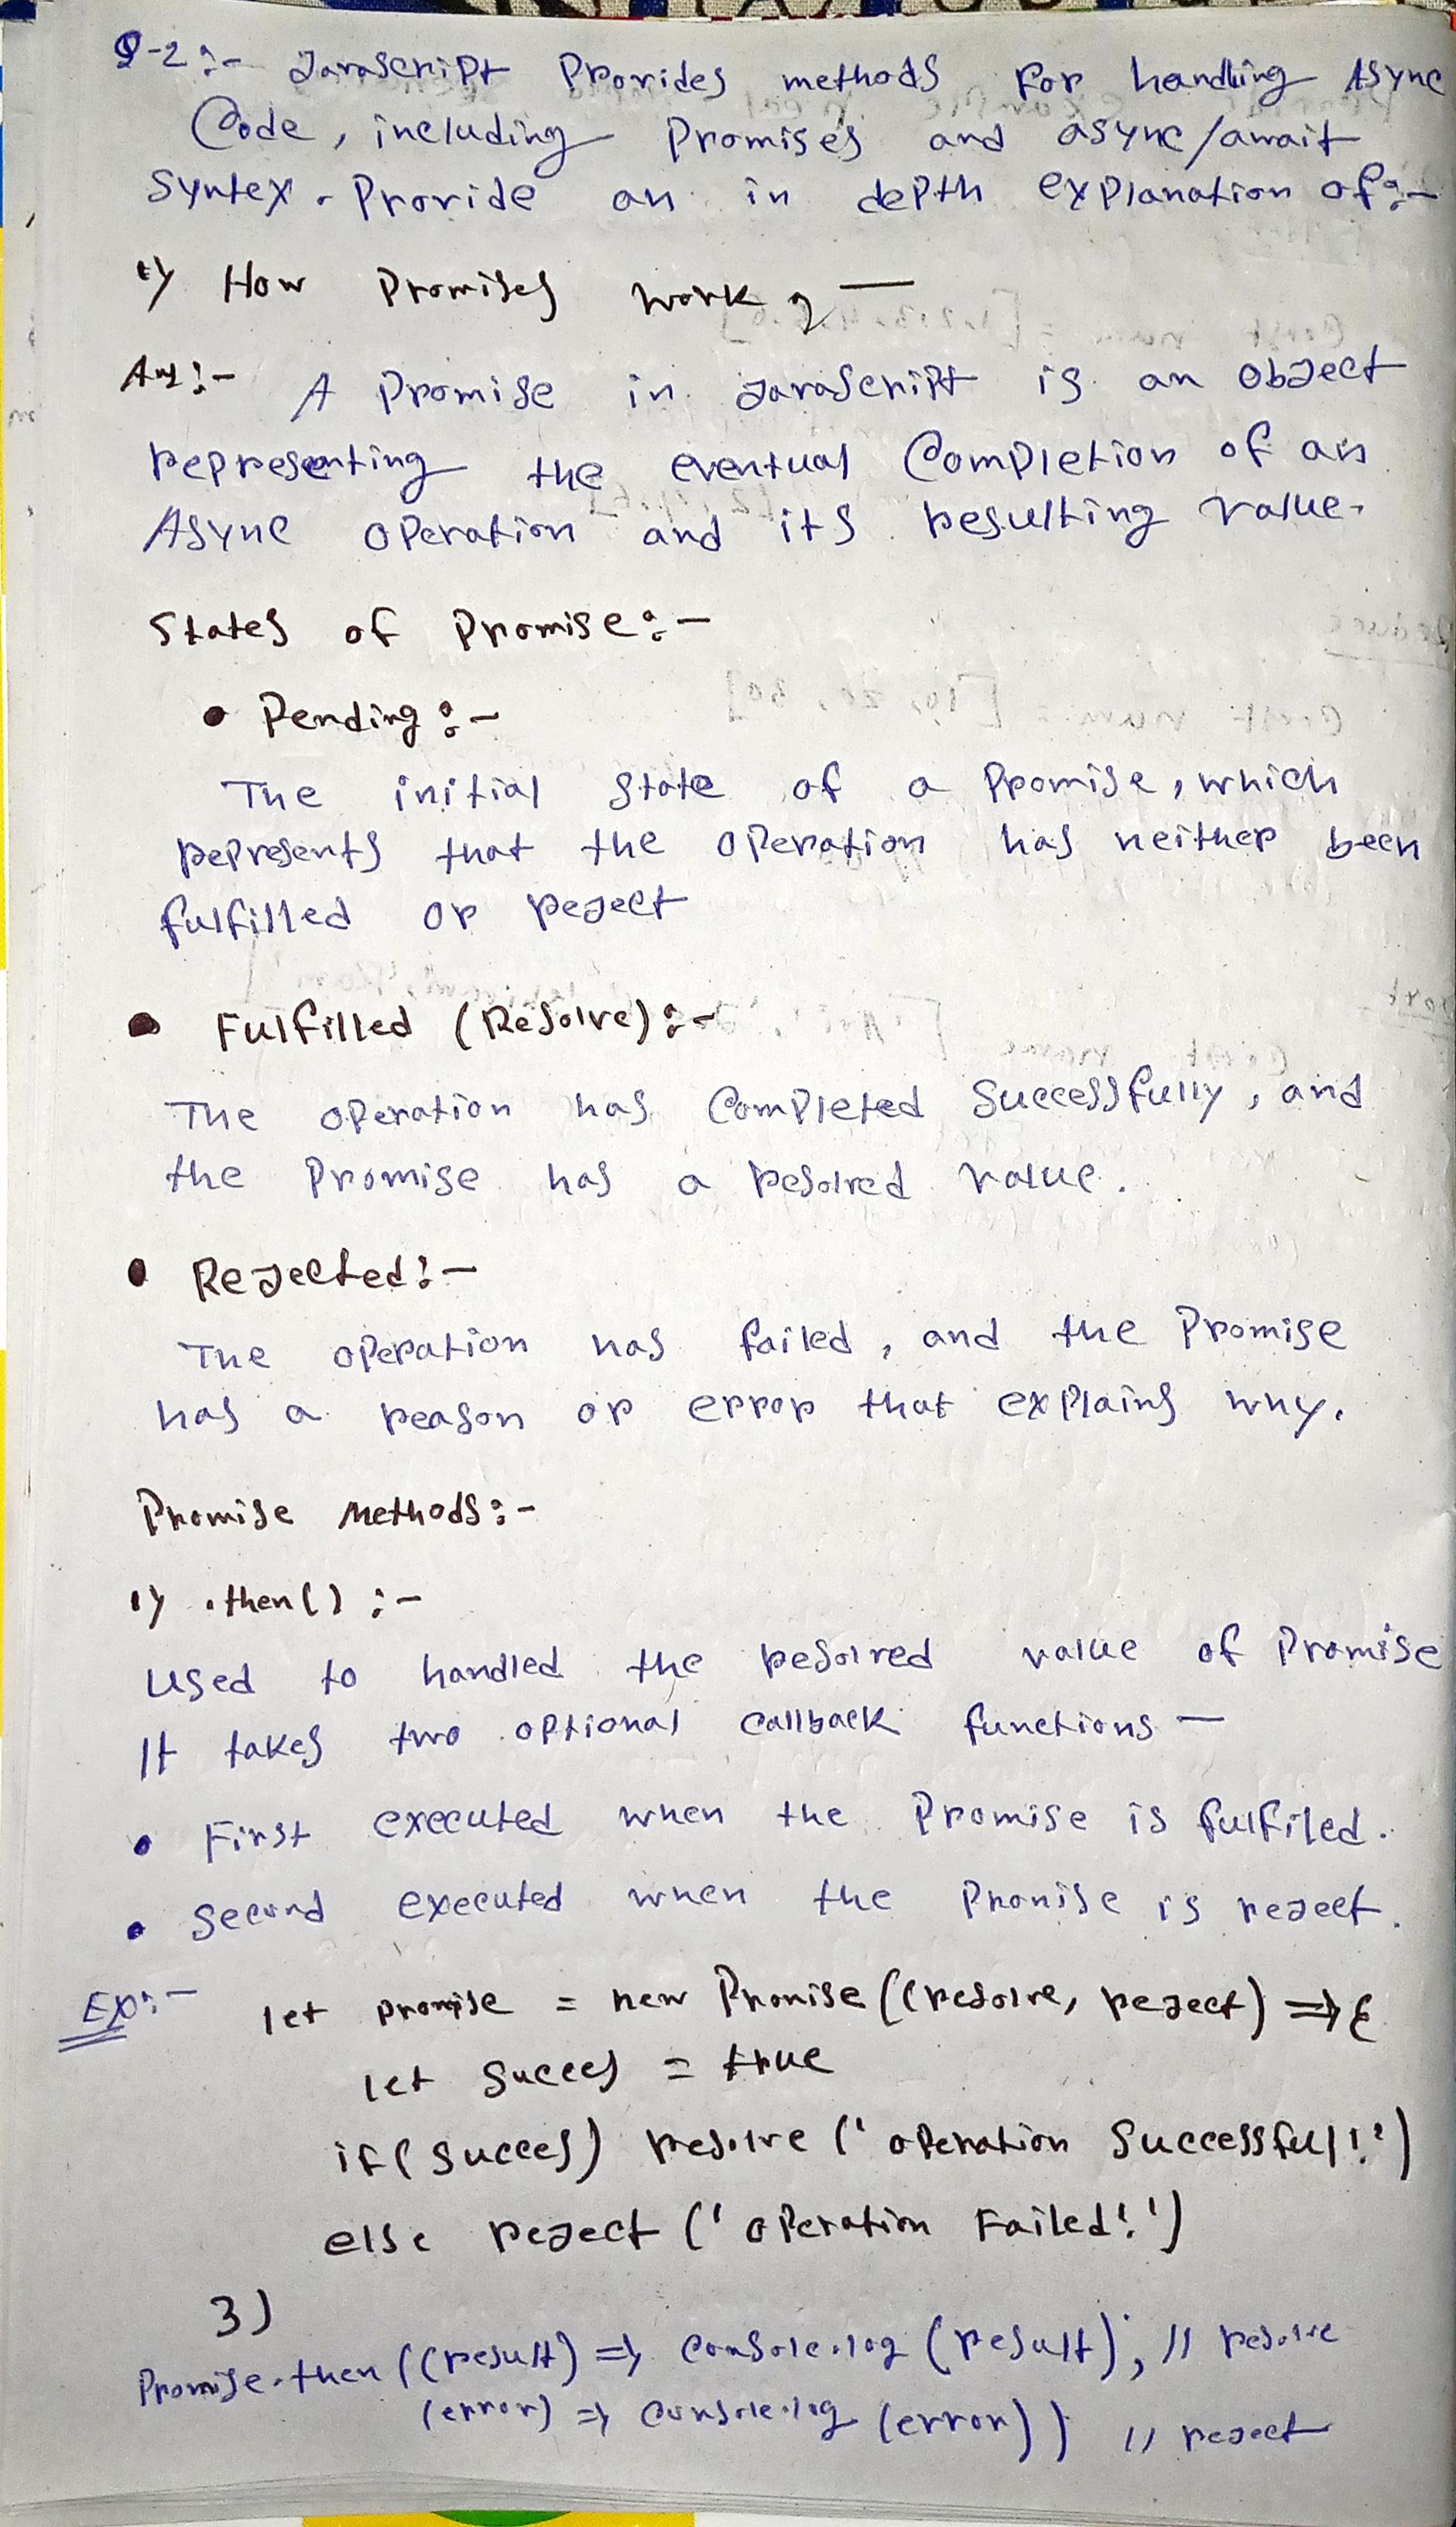 Q-2 :- Javascript Provides methods for handling Async
Code, including Promises and async/await
Syntex. Provide an in depth explanation of :-
1) How Promises work ,—
Ans :- A Promise in Javascript is an object
representing the eventual Completion of an
Async operation and its resulting value.
States of Promise :-
• Pending :-
The initial state of a Promise, which
represents that the operation has neither been
fulfilled or reject
• Fulfilled (Resolve) :-
The operation has Completed Successfully, and
the Promise has a resolved value.
• Rejected :-
The operation has failed, and the Promise
has a reason or error that explains why.
Promise Methods :-
1) .then() :-
Used to handled the resolved value of Promise
It takes two optional callback functions —
• First executed when the Promise is fulfiled.
• Second executed when the Promise is reject.
Ex :- let promise = new Promise((resolve, reject) => {
let Succes = true
if(Succes) resolve ('operation Successful!')
else reject ('operation Failed!')
})
Promise.then((result) => Console.log (result), // resolve
(error) => Console.log (error)) // reject